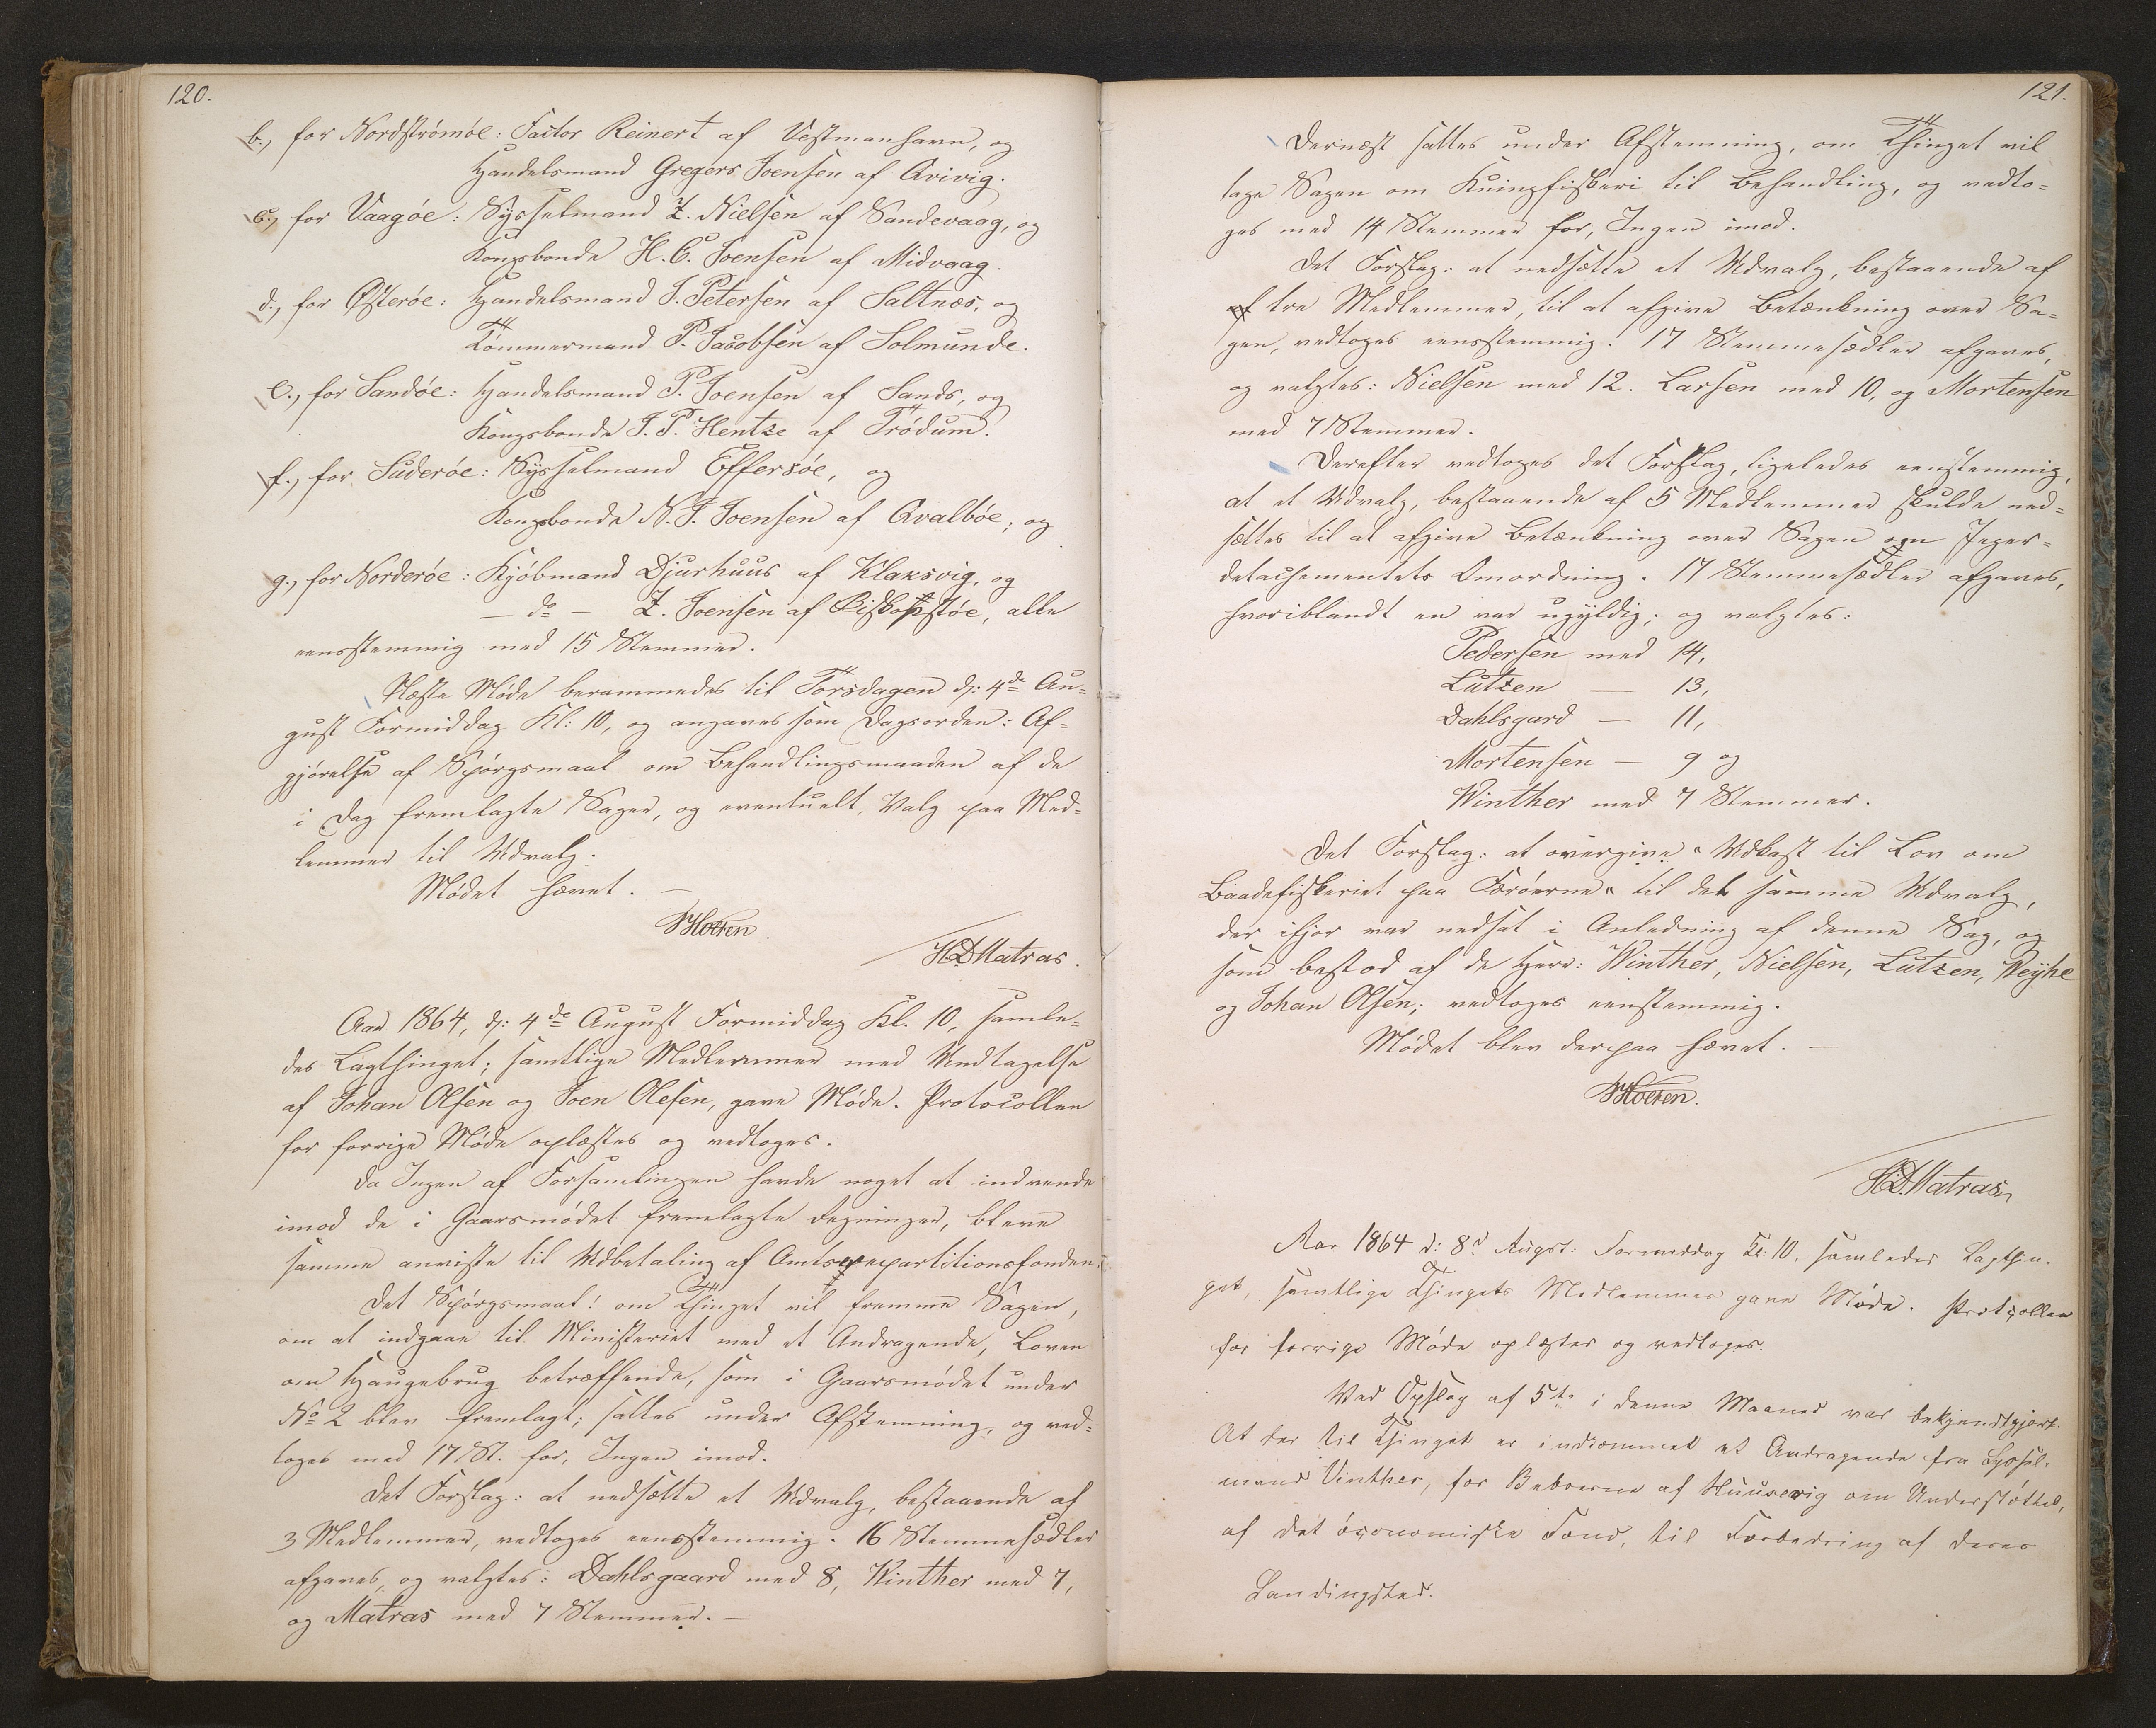 120.
b., for Nordströmöe: Factor Reinert af Vestmanhavn, og
Handelsmand Gregers Joensen af Qvivig.
c., for Vaagöe: Sysselmand Z. Nielsen af Sandevaag, og
Kongsbonde H. C. Joensen af Midvaag.
d., for Østeröe: Handelsmand J. Petersen af Saltnæs, og
Tömmermand P. Jacobsen af Solmunde.
e., for Sandöe: Handelsmand P. Joensen af Sands, og
Kongsbonde J. P. Hentze af Trödum.
f., for Suderöe: Sysselmand Effersöe, og
Kongsbonde N. J. Joensen af Qvalböe; og
g., for Norderöe: Kjöbmand Djurhuus af Klaksvig, og
— do — Z. Joensen af Biskopstöe, alle
eensstemmig med 15 Stemmer.
Næste Möde berammedes til Torsdagen d: 4de Au=
gust Formiddag Kl: 10, og angaves som Dagsorden: Af=
gjörelse af Spörgsmaal om Behandlingsmaaden af de
i Dag fremlagte Sager, og eventuelt, Valg paa Med=
lemmer til Udvalg.
Mödet hævet. —
HDMatras.
Aar 1864, d: 4de August Formiddag Kl. 10, samle=
des Lagthinget; samtlige Medlemmer med Undtagelse
af Johan Olsen og Joen Olesen, gave Möde. Protocollen
for forrige Möde oplæstes og vedtoges.
Da Ingen af Forsamlingen havde noget at indvende
imod de i Gaarsmödet fremlagte Regninger, bleve
samme anviste til Udbetaling af Amtsrepartitionsfonden.
Det Spörgsmaal: om Thinget vil fremme Sagen,
om at indgaae til Ministeriet med et Andragende, Loven
om Haugebrug betræffende, som i Gaarsmödet under
No 2 blev fremlagt; sattes under Afstemning, og ved=
toges med 17 St. for, Ingen imod.
Det Forslag: at nedsætte et Udvalg, bestaaende af
3 Medlemmer, vedtoges eensstemmig. 16 Stemmesedler
afgaves, og valgtes: Dahlsgaard med 8, Winther med 7,
og Matras med 7 Stemmer. —
121.
Dernæst sattes under Afstemning, om Thinget vil
tage Sagen om Kuingfiskeri til Behandling, og vedto=
ges med 14 Stemmer for, Ingen imod.
Det Forslag: at nedsætte et Udvalg, bestaaende af
af tre Medlemmer, til at afgive Betænkning over Sa=
gen, vedtoges eensstemmig. 17 Stemmesedler afgaves,
og valgtes: Nielsen med 12. Larsen med 10, og Mortensen
med 7 Stemmer.
Derefter vedtoges det Forslag, ligeledes eenstemmig,
at et Udvalg, bestaaende af 5 Medlemmer skulde ned=
sættes til at afgive Betænkning over Sagen om Jæger=
detachementets Omordning. 17 Stemmesedler afgaves,
hvoriblandt en var ugyldig; og valgtes:
Pedersen med 14,
Lützen — 13,
Dahlsgard — 11,
Mortensen — 9 og
Winther med 7 Stemmer.
Det Forslag: at overgive "Udkast til Lov om
Baadefiskeriet paa Færöerne" til det samme Udvalg,
der ifjor var nedsat i Anledning af denne Sag, og
som bestod af de Herr: Winther, Nielsen, Lützen, Weyhe
og Johan Olsen; vedtoges eenstemmig.
Mödet blev derpaa hævet. —
HDMatras
Aar 1864 d: 8d Augst: Formiddag Kl: 10, samledes Lagthin-
get, samtlige Thingets Medlemmer gave Möde. Protocollen
for forrige Möde oplæstes og vedtoges.
Ved Opslag af 5te i denne Maaned var bekjendtgjort.
At der til Thinget er indkommet et Andragende fra Syssel-
mand Vinther, for Beboerne af Huusevig om Understöttelse,
af det öconomiske Fond, til Forbedring af deres
Landingsted.